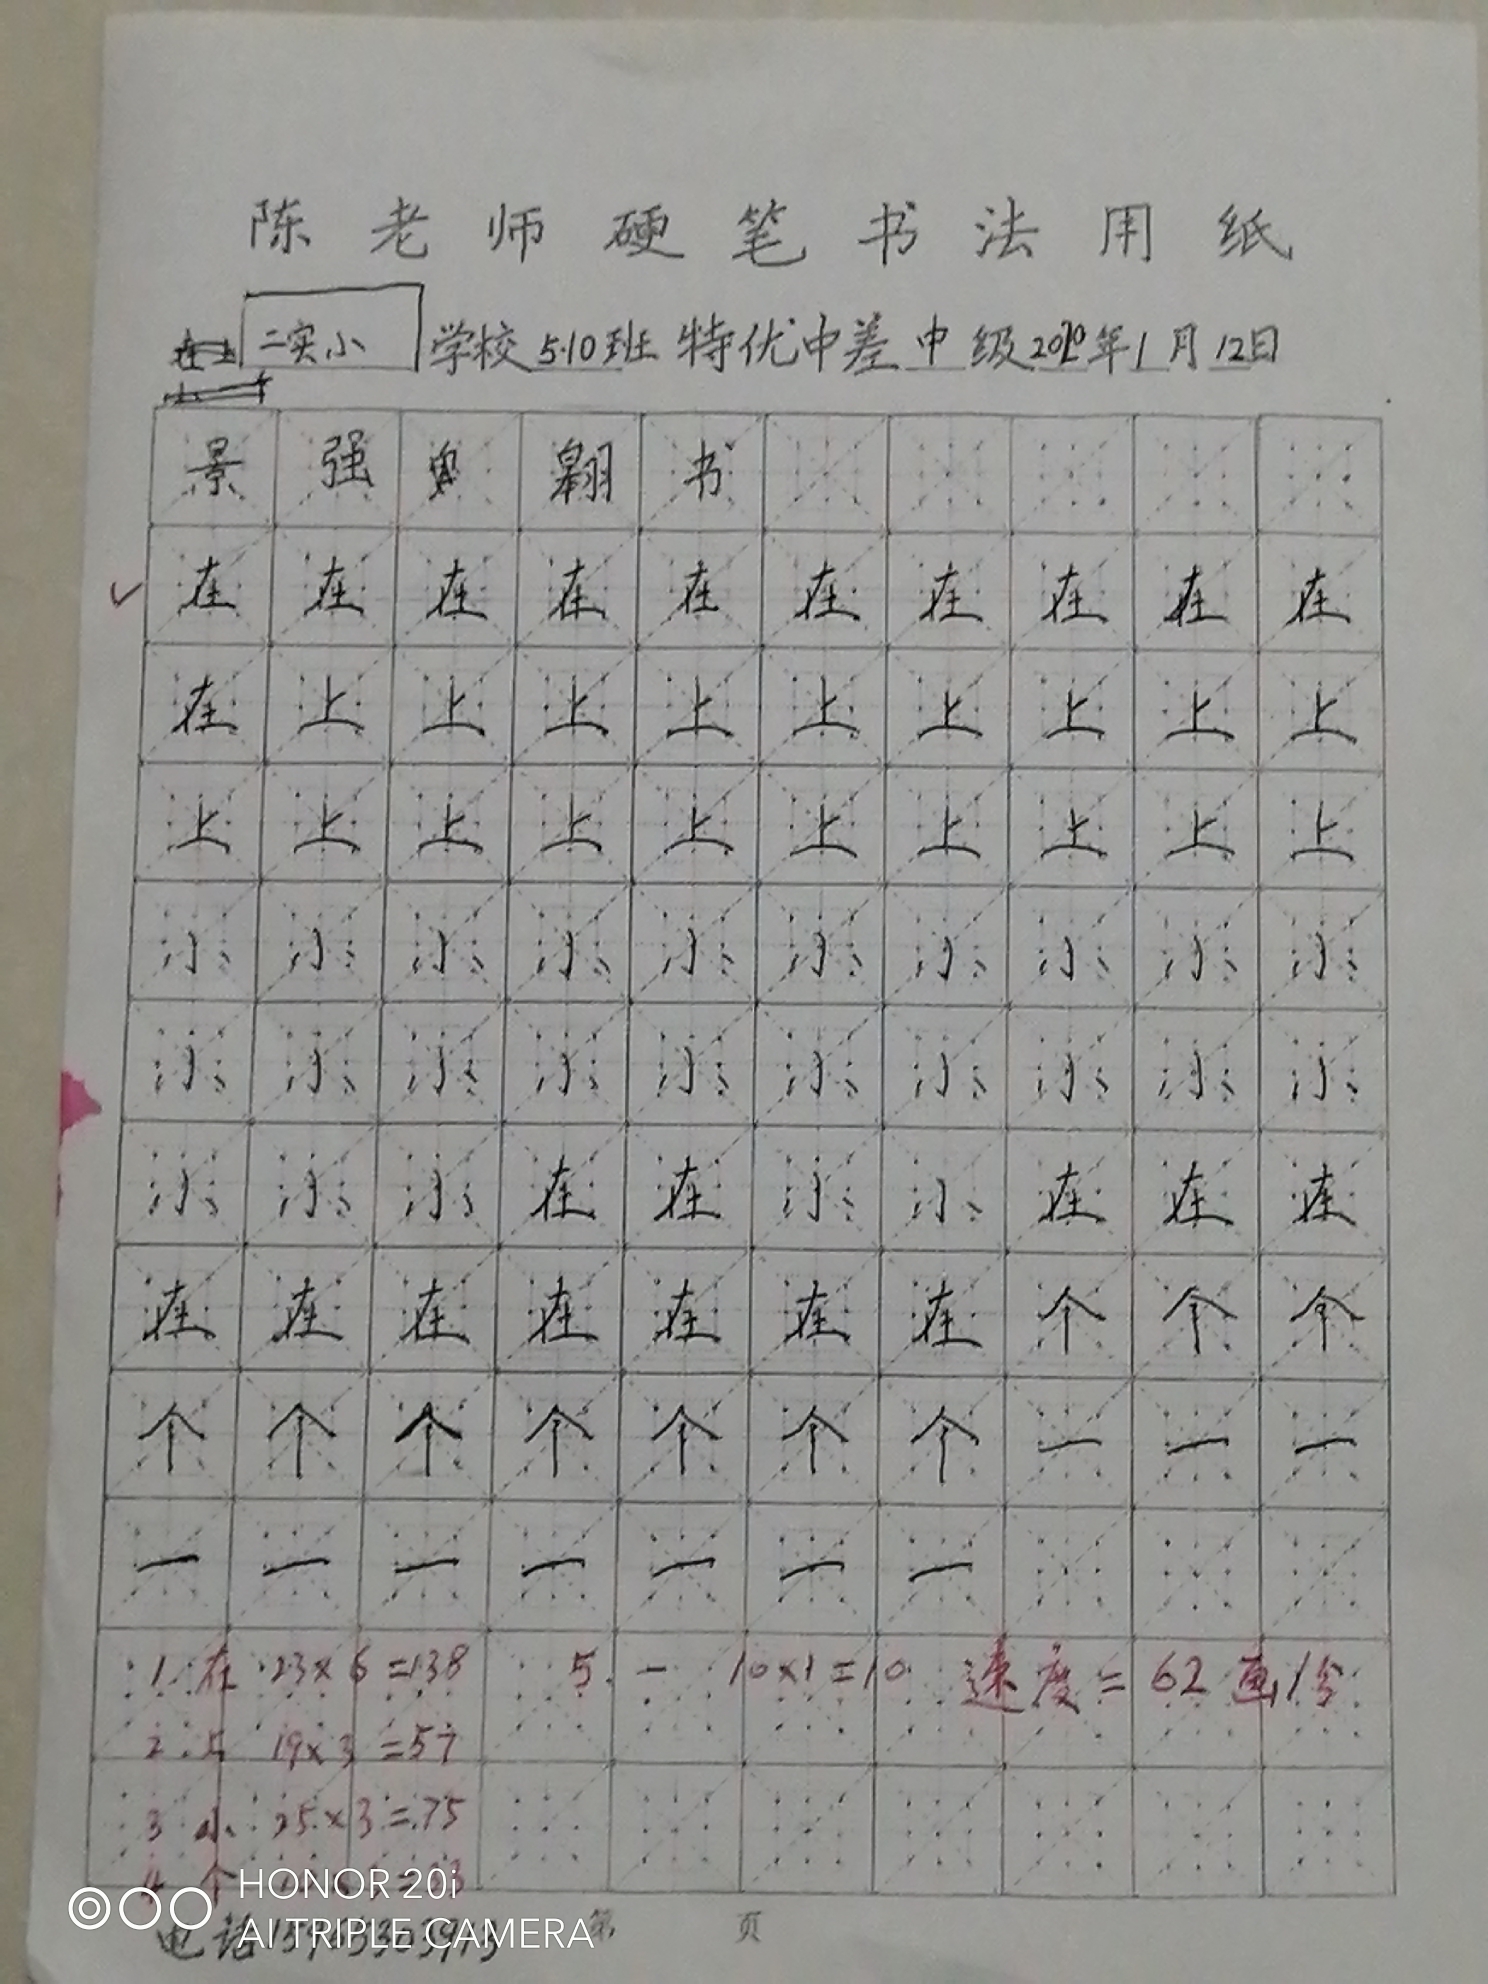 陈老师硬笔书法用纸
二实小 学校5.10班 特优中差 中 级2020年1月12日
景 强 翱 书
在 在 在 在 在 在 在 在 在 在
在 上 上 上 上 上 上 上 上 上
上 上 上 上 上 上 上 上 上 上
小 小 小 小 小 小 小 小 小 小
小 小 小 小 小 小 小 小 小 小
小 小 小 在 在 小 小 在 在 在
在 在 在 在 在 在 在 个 个 个
个 个 个 个 个 个 个 一 一 一
一 一 一 一 一 一 一
1. 在 23×6=138 5. 一 10×1=10 速度=62画/分
2. 上 19×3=57
3 小 25×3=75
4 个
HONOR 20i
AI TRIPLE CAMERA
电话
第 页